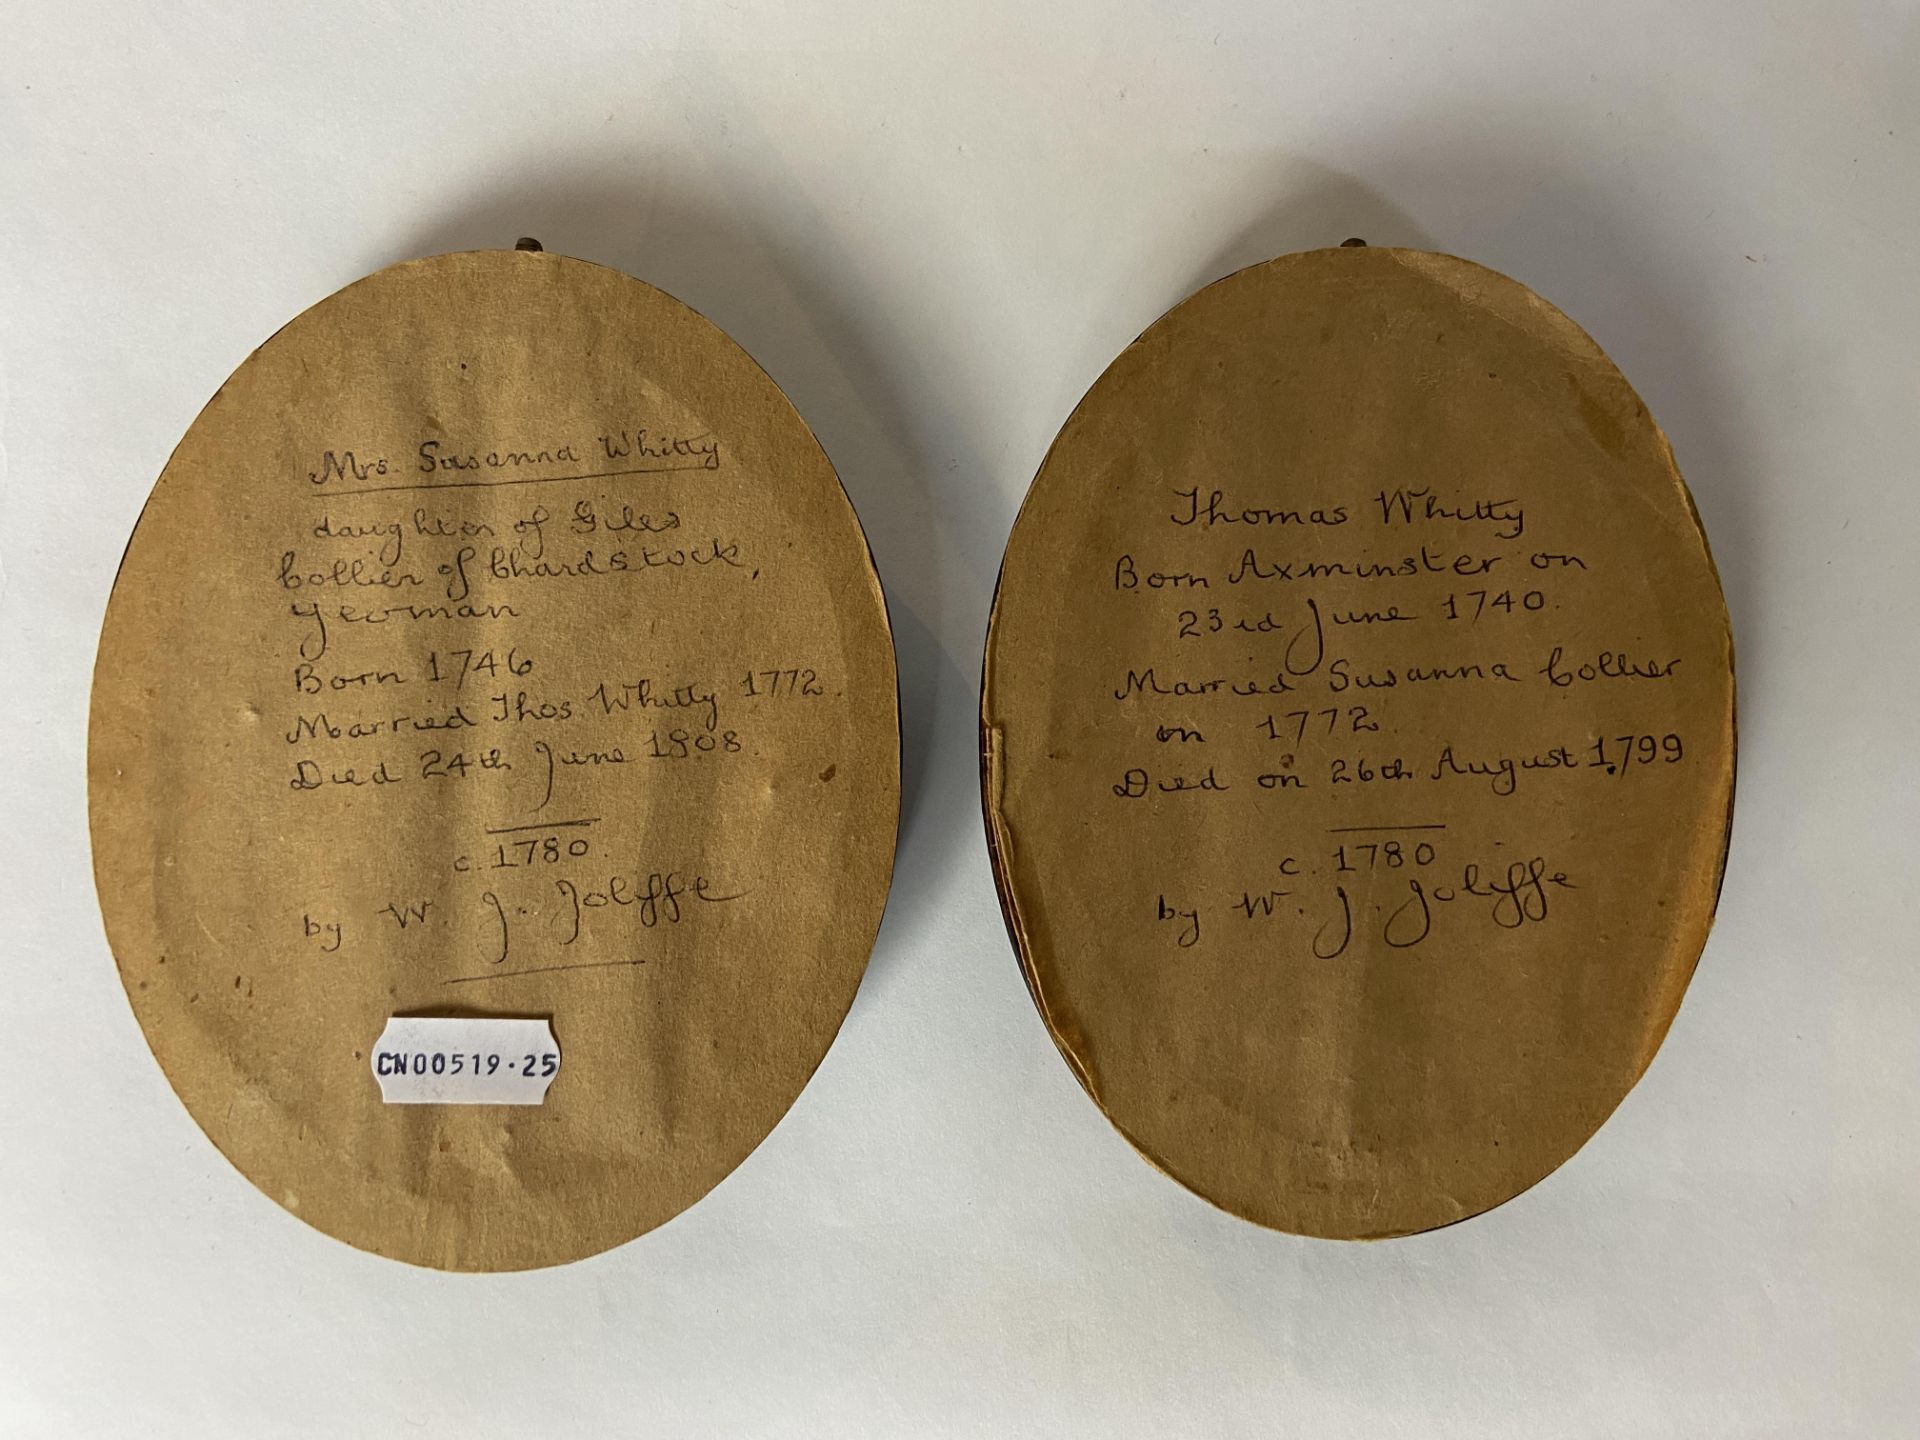 Mrs. Susanna Whitty
daughter of Giles
Collier of Chardstock,
Yeoman
Born 1746
Married Thos. Whitty 1772.
Died 24th June 1808.
c. 1780.
by W. J. Joliffe
CN00519·25
Thomas Whitty
Born Axminster on
23rd June 1740.
Married Susanna Collier
on 1772.
Died on 26th August 1799
c. 1780
by W. J. Joliffe